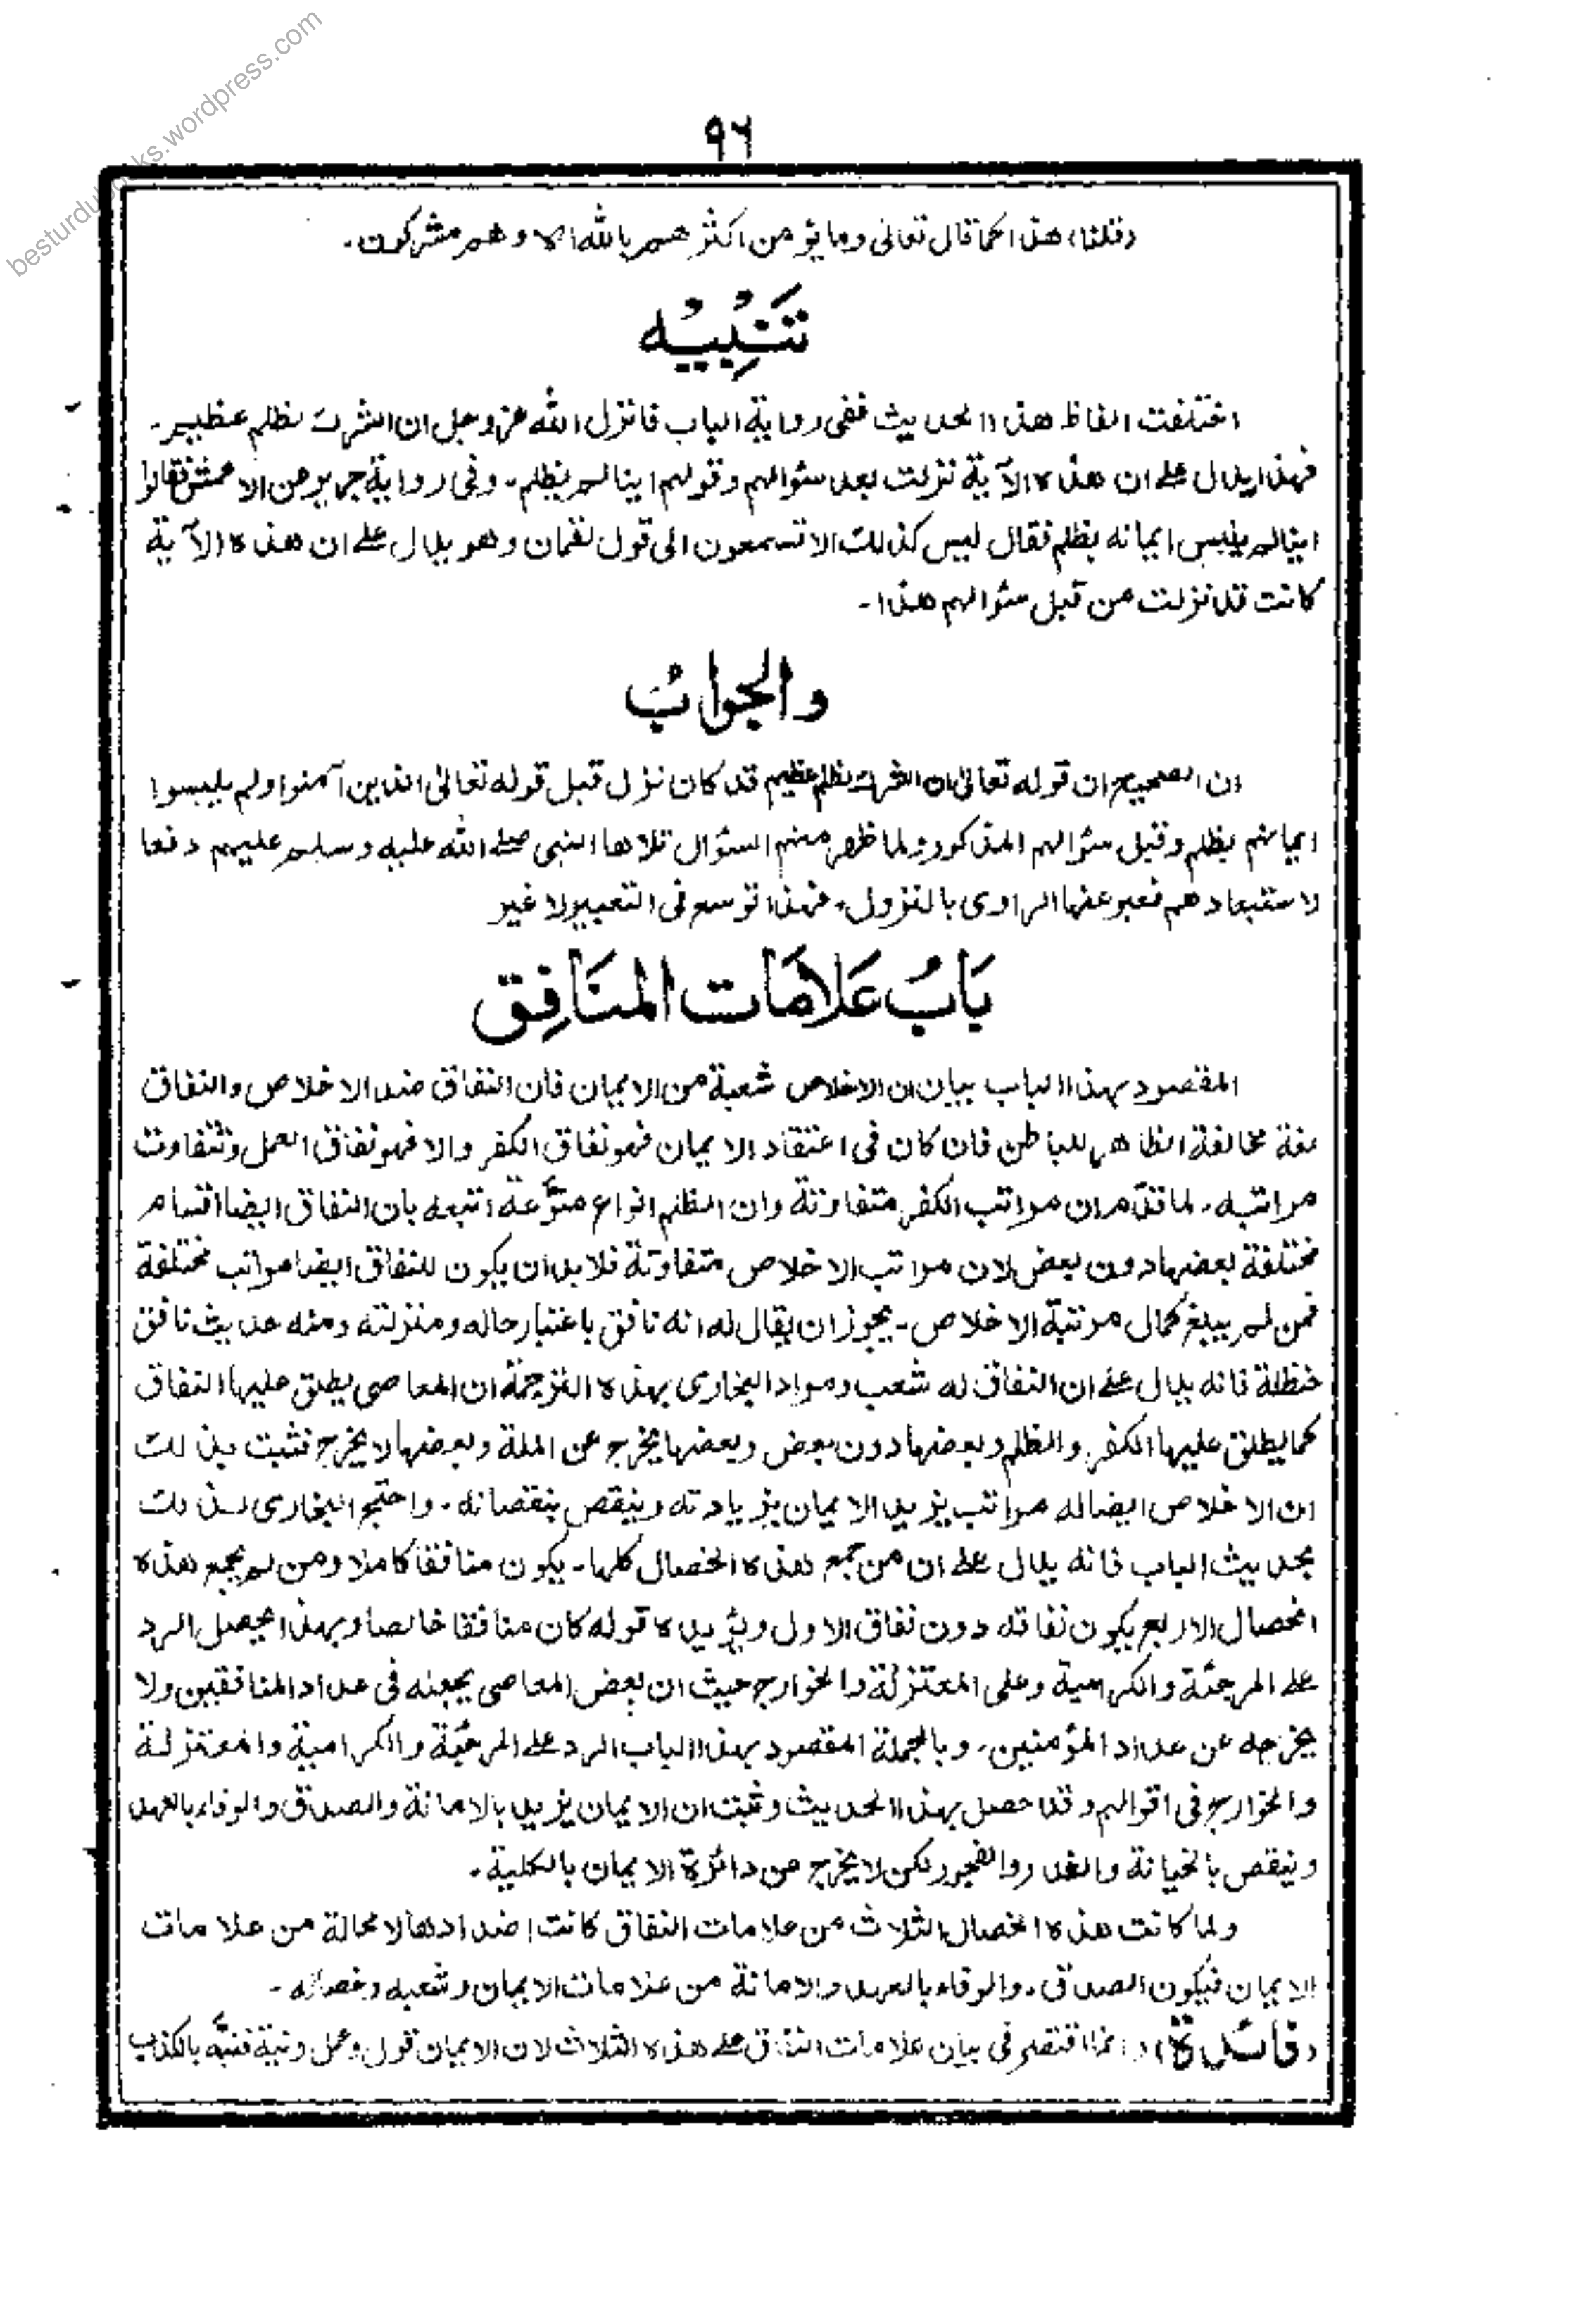 besturdubooks.wordpress.com
٩٦
(قلنا) هذا كما قال تعالى وما يؤمن اكثرهم بالله الا وهم مشركون۔
تَنْبِيْهٌ
اختلفت الفاظ هذا الحديث ففى رواية الباب فانزل الله عز وجل ان الشرك لظلم عظيم۔
فهذا يدل على ان هذه الآية نزلت بعد سؤالهم وقولهم اينا لم يظلم۔ وفى رواية جرير عن الاعمش فقالوا
اينا لم يلبس ايمانه بظلم فقال ليس كذلك الا تسمعون الى قول لقمان وهو يدل على ان هذه الآية
كانت قد نزلت من قبل سؤالهم هذا۔
والجوابُ
ان الصحيح ان قوله تعالى ان الشرك لظلم عظيم قد كان نزل قبل قوله تعالى الذين آمنوا ولم يلبسوا
ايمانهم بظلم وقبل سؤالهم المذكور ولما ظهر منهم السؤال تلاها النبى صلے الله عليه وسلم عليهم دفعا
لاستبعادهم فعبر عنها الراوى بالنزول۔ فهذا توسع فى التعبير لا غير
بَابُ عَلَامَات المنَافِق
المقصود بهذا الباب بيان ان الاخلاص شعبة من الايمان فان النفاق ضد الاخلاص والنفاق
لغة مخالفة الظاهر للباطن فان كان فى اعتقاد الايمان فهو نفاق الكفر والا فهو نفاق العمل وتتفاوت
مراتبه۔ لما تقدم ان مراتب الكفر متفاوتة وان الظلم انواع متنوّعة اتبعه بان النفاق ايضا اقسام
مختلفة بعضها دون بعض لان مراتب الاخلاص متفاوتة فلابد ان يكون للنفاق ايضا مراتب مختلفة
فمن لم يبلغ كمال مرتبة الاخلاص۔ يجوز ان يقال له انه نافق باعتبار حاله ومنزلته ومنه حديث نافق
حنظلة فانه يدل على ان النفاق له شعب ومراد البخارى بهذه الترجمة ان المعاصى يطلق عليها النفاق
كما يطلق عليها الكفر والظلم وبعضها دون بعض وبعضها يخرج عن الملة وبعضها لا يخرج فثبت بذلك
ان الاخلاص ايضا له مراتب يزيد الايمان بزيادته وينقص بنقصانه۔ واحتج البخارى لذلك
بحديث الباب فانه يدل على ان من جمع هذه الخصال كلها۔ يكون منافقا كاملا ومن لم يجمع هذه
الخصال الاربع يكون نفاقه دون نفاق الاول ويؤيده قوله كان منافقا خالصا وبهذا يحصل الرد
على المرجئة والكرامية وعلى المعتزلة والخوارج حيث ان بعض المعاصى يجعله فى عداد المنافقين ولا
يخرجه عن عداد المؤمنين۔ وبالجملة المقصود بهذا الباب الرد على المرجئة والكرامية والمعتزلة
والخوارج فى اقوالهم وقد حصل بهذا الحديث وثبت ان الايمان يزيد بالامانة والصدق والوفاء بالعهد
وينقص بالخيانة والغدر والفجور لكن لا يخرج من دائرة الايمان بالكلية۔
ولما كانت هذه الخصال الثلاث من علامات النفاق كانت اضدادها لا محالة من علامات
الايمان فيكون الصدق۔ والوفاء بالعهد والامانة من علامات الايمان وشعبه وخصاله۔
(فائدة) وانما اقتصر فى بيان علامات النفاق على هذه الثلاث لان الايمان قول وعمل ونية فنبّه بالكذب